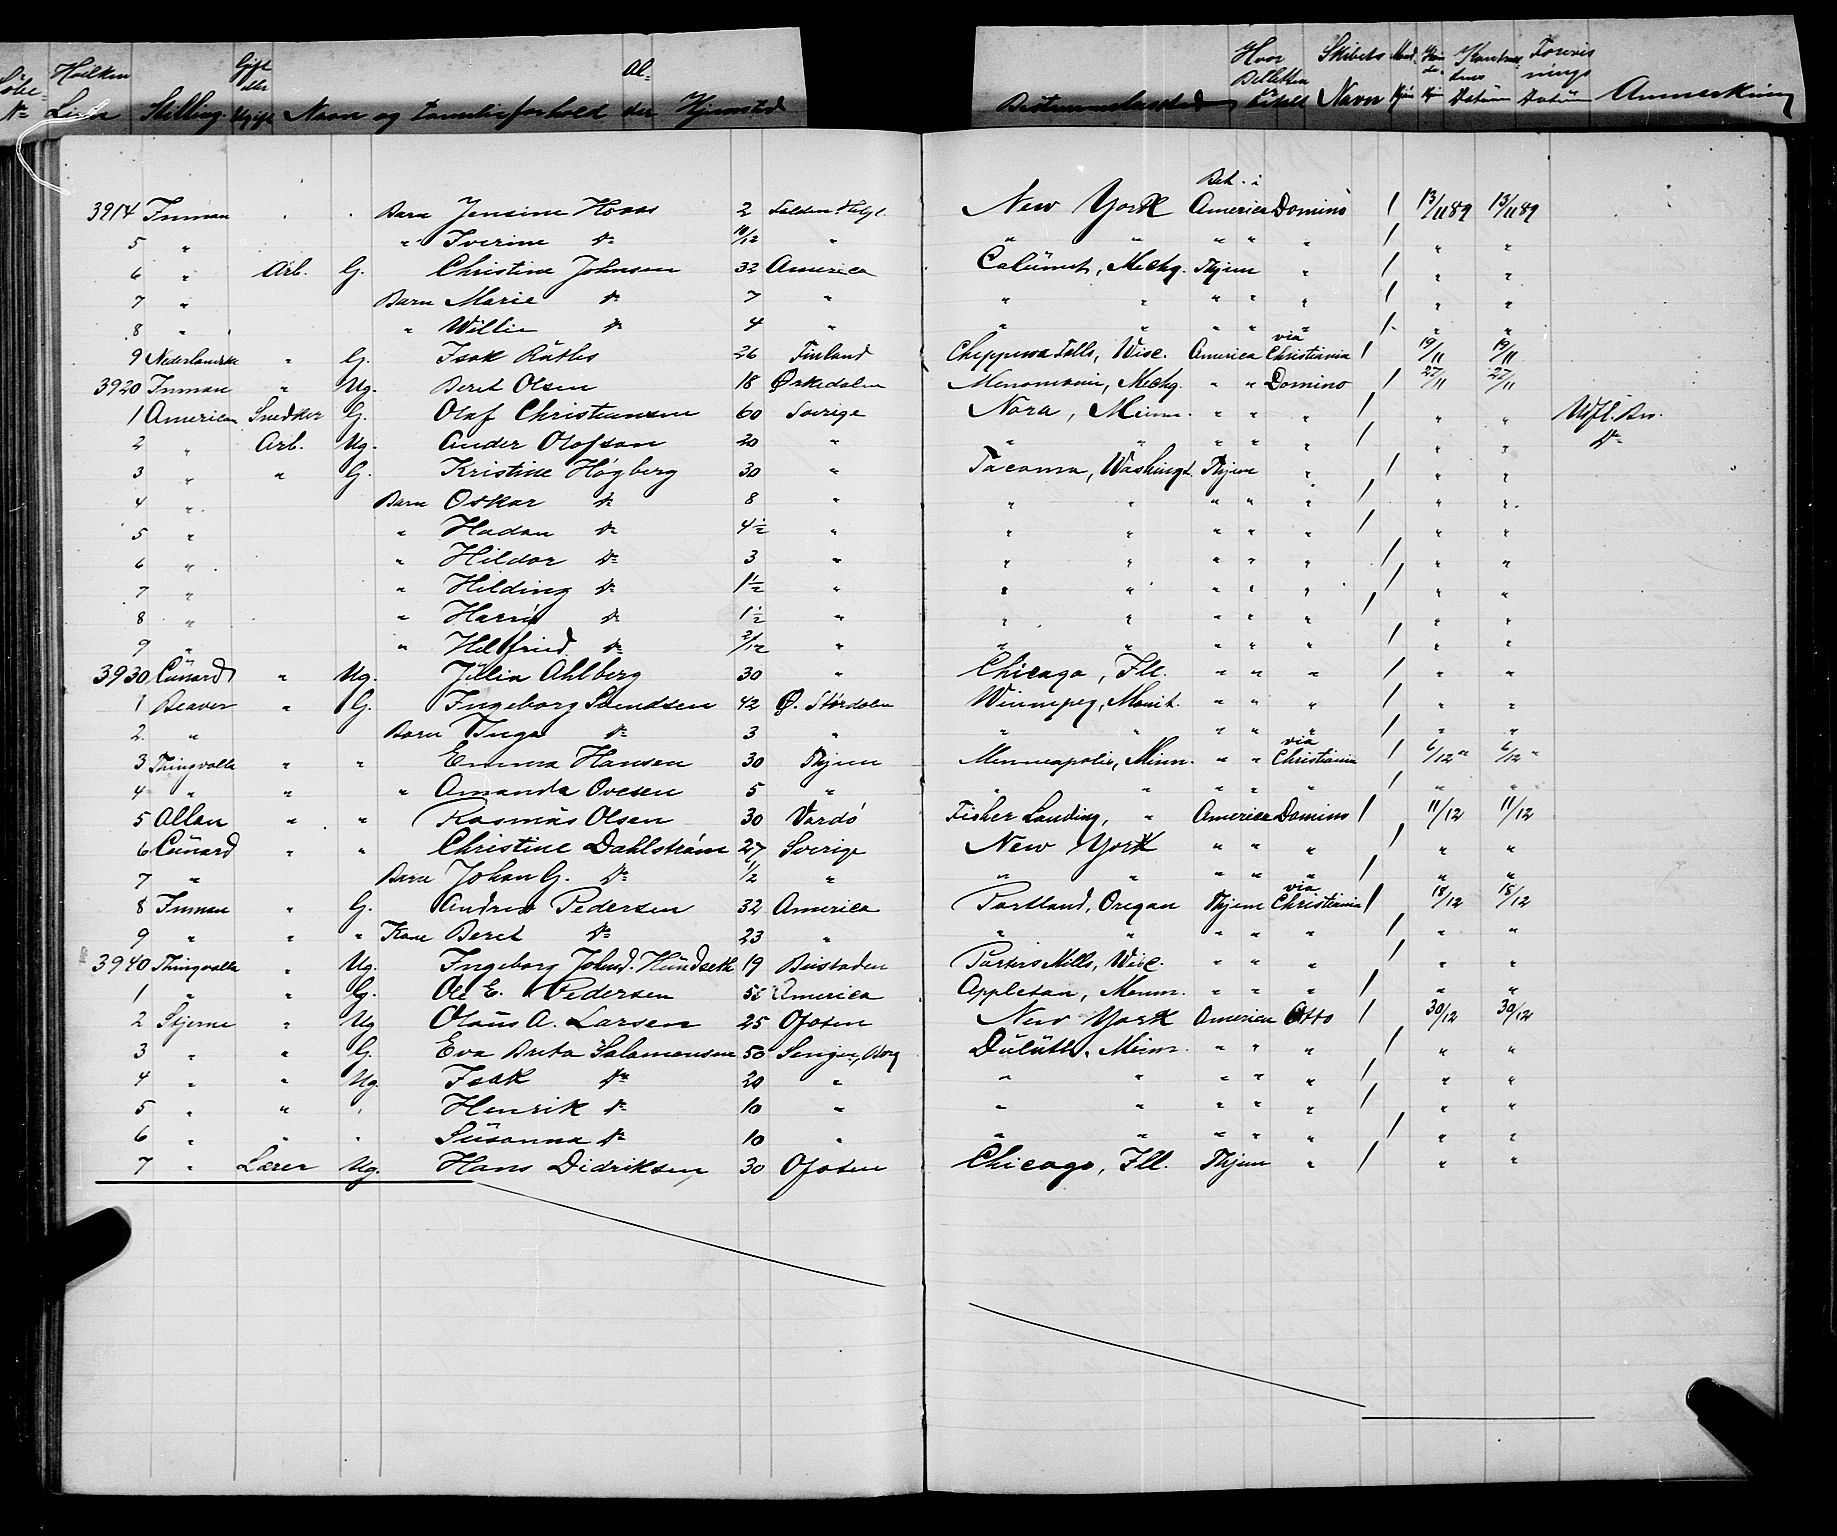 Löbe- No Hvilken Linie Stilling Gift eller Ugift Navn og Familieforhold Al- der Hjemsted Bestemmelsessted Hvor Billetten er kjøbt Skibets Navn Mand- kjön Kvin- de- kjön Kontrac- tens Datum Forevis- nings Datum Anmerkning
3914 Inman " " Barn Jensine Hovas 2 New York Bet. i America Domino 1 13/11 89 13/11 89
5 " " Iverine Do 10/12 " " " " " " 1 " "
6 " Arb. G. Christine Johnsen 32 America Calumet, Michg. Thjem " 1 " "
7 " Barn Marie Do 7 " " " " " " 1 " "
8 " " Willie Do 4 " " " " " " 1 " "
9 Nederlandske " G. Isak 26 Finland Chippewa Falls, Wisc. America via Christiania 1 19/11 19/11
3920 Inman " Ug. Beret Olsen 18 Ørkedalen Menominie, Michg. " " Domino 1 27/11 27/11
1 American Snedker G. Olaf Christiansen 60 Sverige Nora, Minn. " " " 1 " "
2 " Arb. Ug. Ander Olofson 20 " " " " " " 1 " " Do
3 " " G. Kristine Högberg 30 " Tacoma, Washingt. Thjem " 1 " "
4 " Barn Oskar Do 8 " " " " " " 1 " "
5 " " Hadan Do 4½ " " " " " " 1 " "
6 " " Hildor Do 3 " " " " " " 1 " "
7 " " Hilding Do 1½ " " " " " " 1 " "
8 " " Do 1½ " " " " " " 1 " "
9 " " Helfried Do 2/12 " " " " " " 1 " "
3930 Cunard " Ug. Jullia Ahlberg 30 " Chicago, Ill. " " " 1 " "
1 Beaver " G. Ingeborg Svendsen 42 Ø. Stördalen Winnipeg, Manit. " " " 1 " "
2 " Barn Inga Do 3 " " " " " " 1 " "
3 Thingvalla " " Emma Hansen 30 Thjem Minneapolis, Minn. " " via Christiania 1 6/12 " 6/12 "
4 " " " Amanda Ovesen 5 " " " " " " 1 " "
5 Allan " " Rasmus Olsen 30 Vardö Fisher Landing, " America Domino 1 11/12 11/12
6 Cunard " " Christine Dahlström 27 Sverige New York " " " 1 " "
7 " Barn Johan G. Do 1/2 " " " " " " 1 " "
8 Inman " G. Andrew Pedersen 32 America Portland, Oregan Thjem via Christiania 1 18/12 18/12
9 " " " Kone Beret Do 23 " " " " " " 1 " "
3940 Thingvalla " Ug. Ingeborg Johnd. Hundseth 19 Bustaden Porters Mills, Wisc. " " " 1 " "
1 " " G. Ole E. Pedersen America Appleton, Minn. " " " 1 " "
2 Stjerne " Ug Olaus A. Larsen 25 Ofoten New York America Otto 1 30/12 30/12
3 " " G. Eva Brita Salamonsen 50 Senjen, Berg Duluth, Minn. " " " 1 " "
4 " " Ug. Isak Do 20 " " " " " " 1 " "
5 " " " Henrik Do 10 " " " " " " 1 " "
6 " " " Susanna Do 10 " " " " " " 1 " "
7 " Lærer Ug. Hans Didriksen 30 Ofoten Chicago, Ill. Thjem " 1 " "